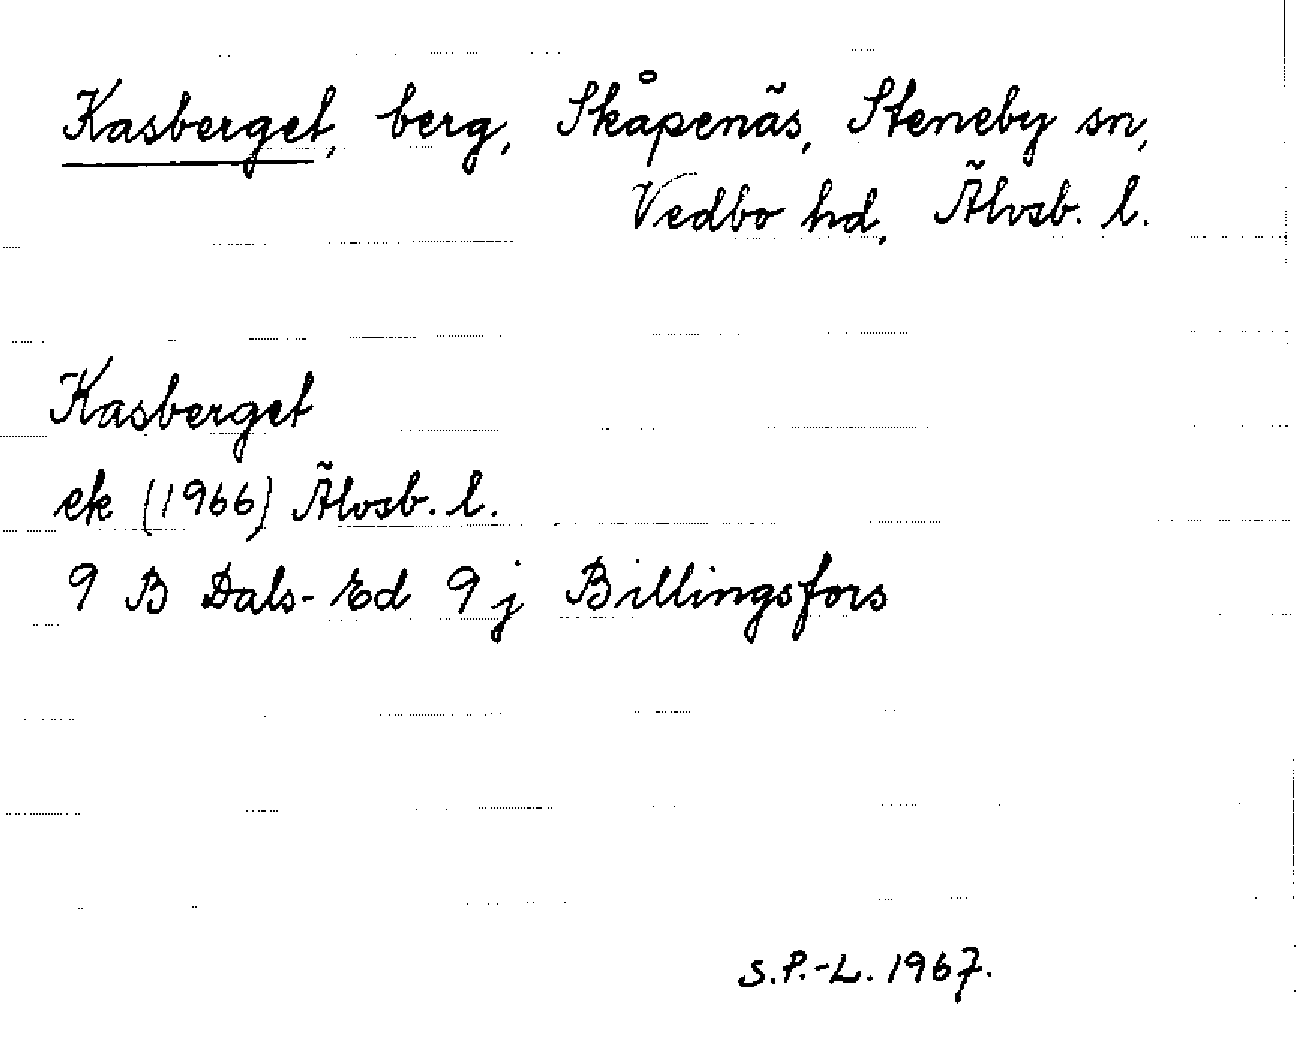 Kasberget, berg, Skåpenäs, Steneby sn,
Vedbo hd, Älvsb. l.
Kasberget
ek (1966) Älvsb. l.
9 B Dals-Ed 9 j Billingsfors
S.P.-L. 1967.